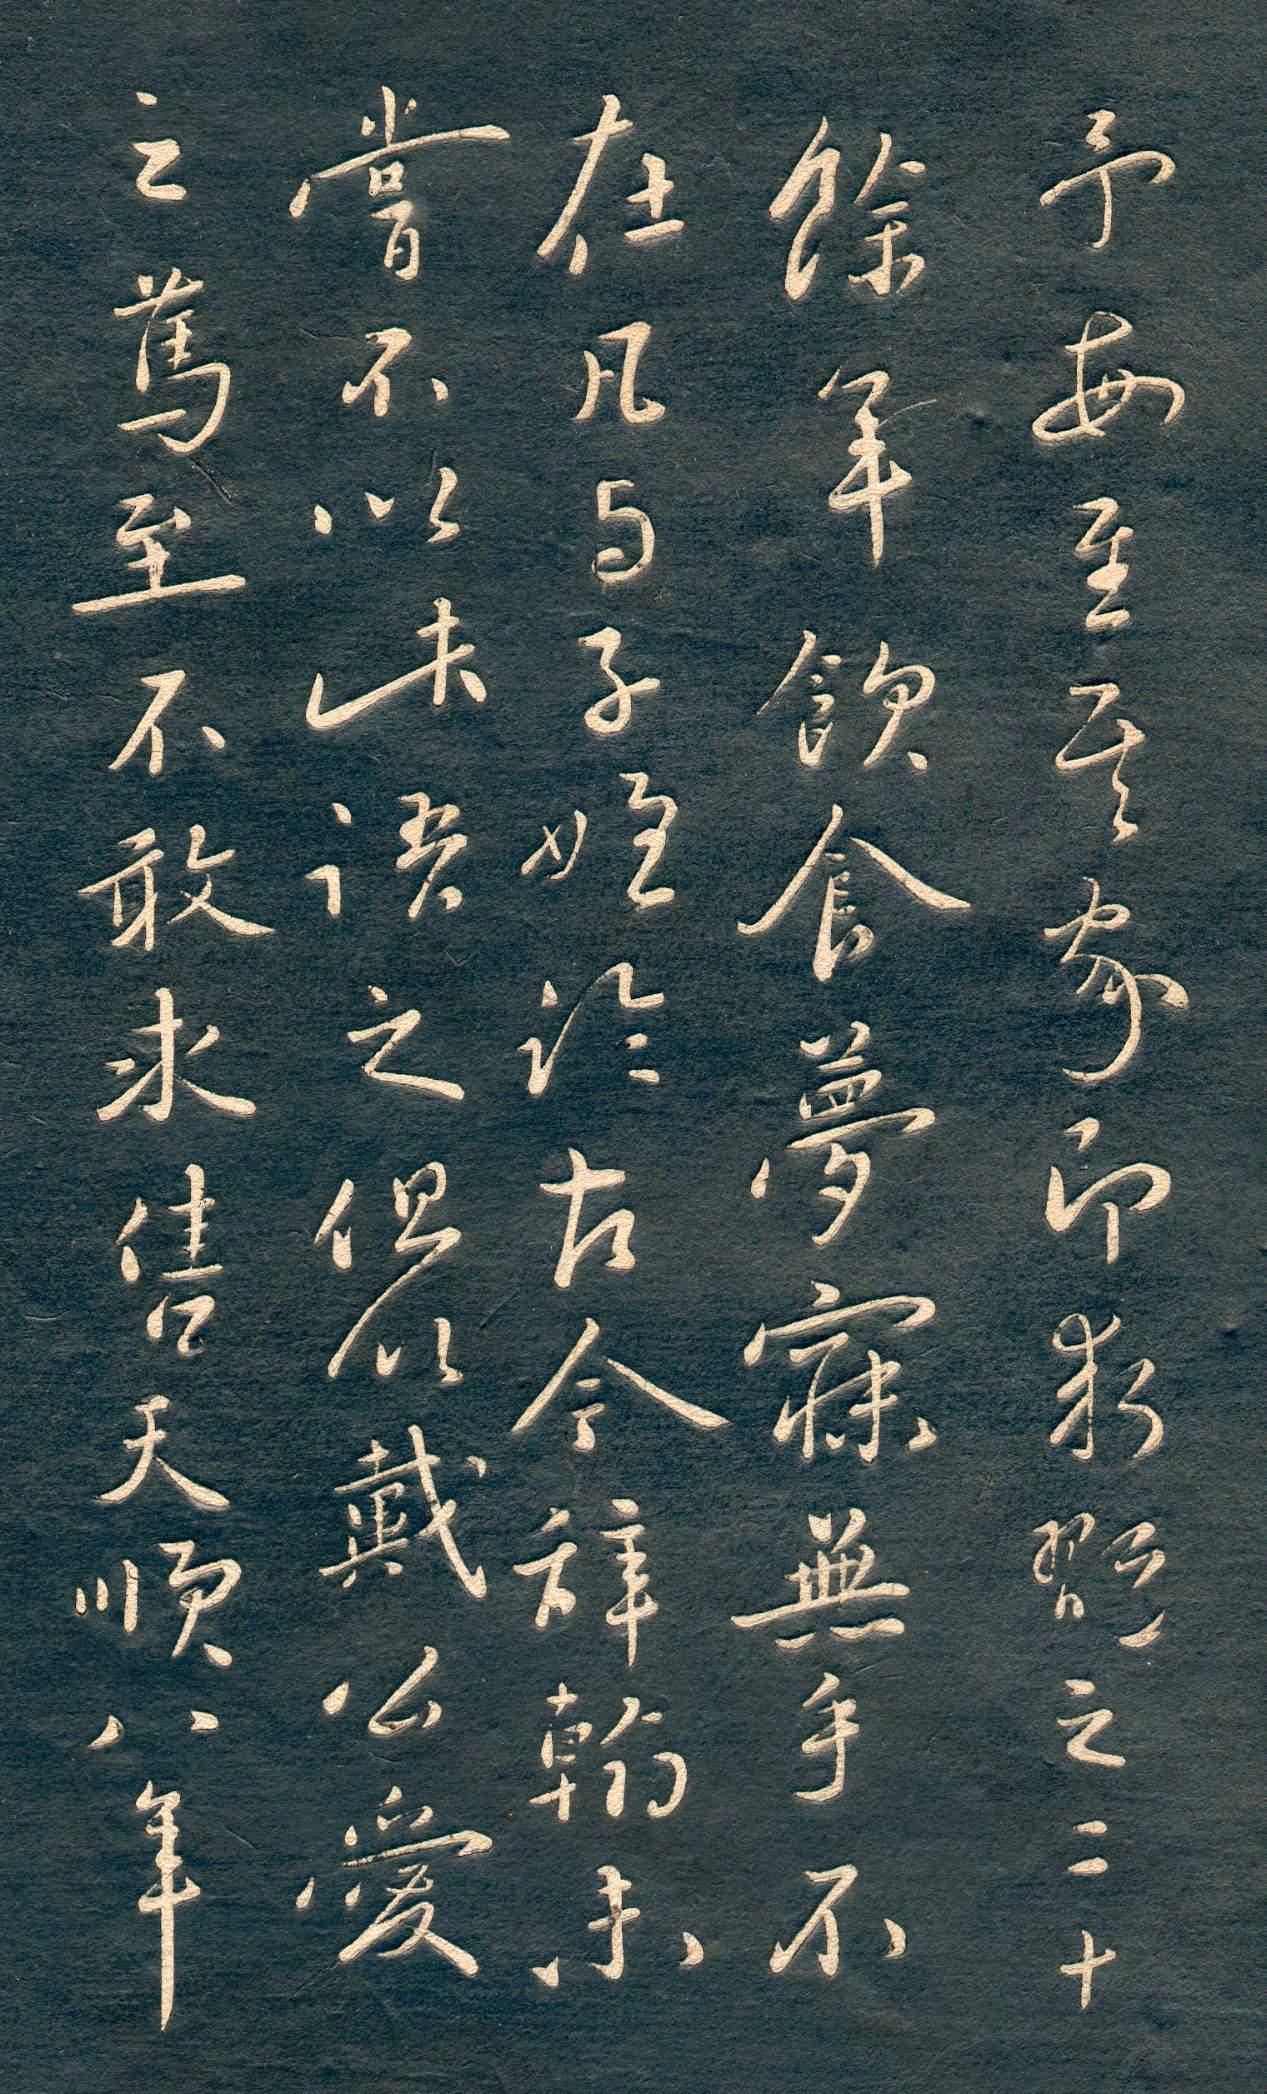 予每至其家即翫之二十
餘年飲食夢寐無手不
在凡与子姪論古今辭翰未
嘗不以此語之但以戴公愛
之篤至不敢求售天順八年